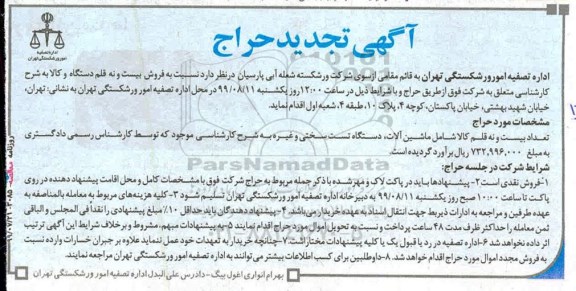 آگهی تجدید حراج
اداره تصفیه
امور ورشکستگی تهران
اداره تصفیه امور ورشکستگی تهران به قائم مقامی ازسوی شرکت ورشکسته شعله آبی پارسیان درنظر دارد نسبت به فروش بیست و نه قلم دستگاه و کالا به شرح
کارشناسی متعلق به شرکت فوق از طریق حراج و با شرایط ذیل در ساعت ۱۲:۰۰ روز یکشنبه ۹۹/۰۸/۱۱ در محل اداره تصفیه امور ورشکستگی تهران به نشانی: تهران،
خیابان شهید بهشتی، خیابان پاکستان، کوچه ۴، پلاک ۱۰، طبقه ۴، شعبه اول اقدام نماید.
مشخصات مورد حراج
تعداد بیست و نه قلم کالا شامل ماشین آلات، دستگاه تست سختی و غیره به شرح کارشناسی موجود که توسط کارشناس رسمی دادگستری
به مبلغ ۷۳۲,۹۹۶,۰۰۰ ریال برآورد گردیده است.
شرایط شرکت در جلسه حراج:
۱-فروش نقدی است ۲- پیشنهادها باید در پاکت لاک و مهر شده با ذکر جمله مربوط به حراج شرکت فوق با مشخصات کامل و محل اقامت پیشنهاد دهنده در روی
پاکت تا ساعت ۱۰:۰۰ صبح روز یکشنبه ۹۹/۰۸/۱۱ به دبیرخانه اداره تصفیه امور ورشکستگی تهران تسلیم شود ۳-کلیه هزینه‌های مربوط به معامله بالمناصفه به
عهده طرفین و مراجعه به ادارات ذیربط جهت انتقال اسناد به عهده خریدار می باشد ۴- پیشنهاد دهندگان باید حداقل ۱۰٪ مبلغ پیشنهادی را نقداً فی المجلس و الباقی
ثمن معامله را حداکثر ظرف مدت ۴۸ ساعت پرداخت و نسبت به تحویل اموال مورد حراج اقدام نمایند ۵-به پیشنهادات مبهم، مشروط و برخلاف شرایط این آگهی ترتیب
اثر داده نخواهد شد ۶-اداره تصفیه در رد یا قبول یک یا کلیه پیشنهادات مختار است ۷-چنانچه خریدار به تعهدات خود عمل ننماید علاوه بر جبران خسارات وارده نسبت
به فروش مجدد اموال مورد حراج اقدام خواهد شد. ۸-داوطلبین برای کسب اطلاعات بیشتر می توانند به اداره تصفیه امور ورشکستگی تهران مراجعه نمایند.
بهرام انواری اغول بیگ - دادرس علی البدل اداره تصفیه امور ورشکستگی تهران
ParsNamadData